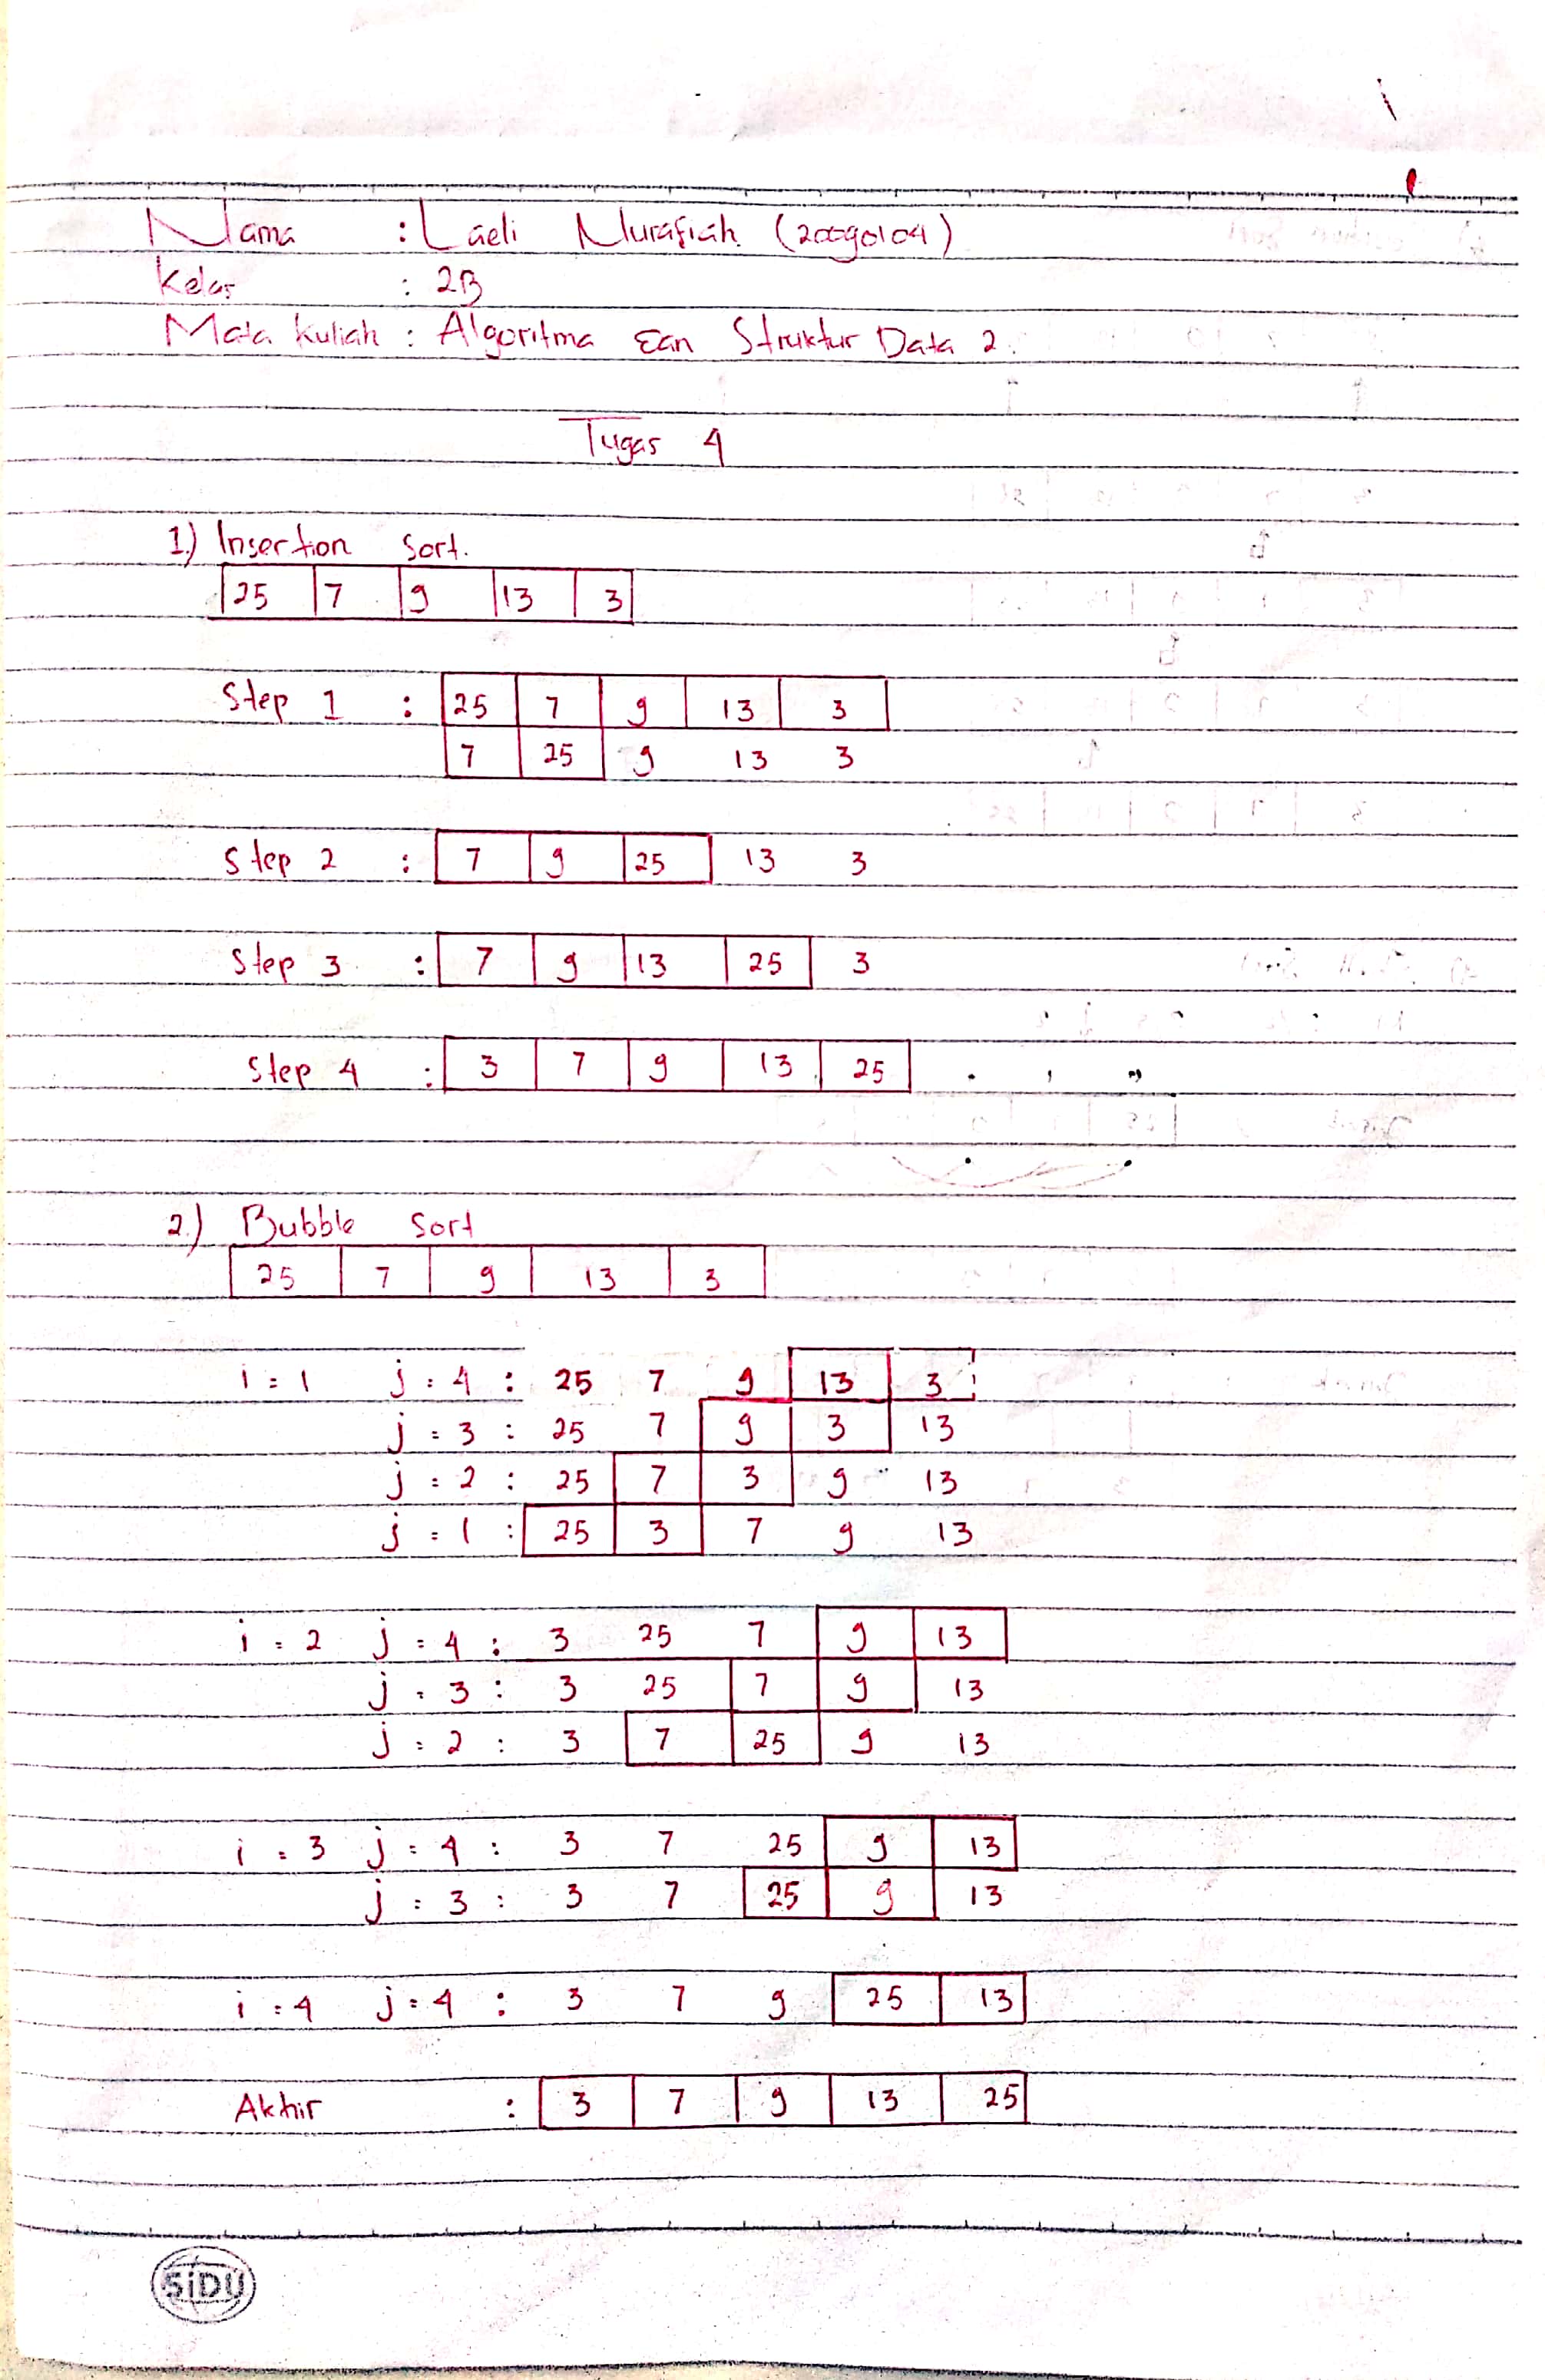 Nama : Laeli Nurafiah (20090104)
Kelas : 2B
Mata kuliah : Algoritma Ean Struktur Data 2.
Tugas 4
1.) Insertion Sort.
25 7 9 13 3
Step 1 : 25 7 9 13 3
7 25 9 13 3
Step 2 : 7 9 25 13 3
Step 3 : 7 9 13 25 3
Step 4 : 3 7 9 13 25
2.) Bubble Sort
25 7 9 13 3
i = 1 j = 4 : 25 7 9 13 3
j = 3 : 25 7 9 3 13
j = 2 : 25 7 3 9 13
j = 1 : 25 3 7 9 13
i = 2 j = 4 : 3 25 7 9 13
j = 3 : 3 25 7 9 13
j = 2 : 3 7 25 9 13
i = 3 j = 4 : 3 7 25 9 13
j = 3 : 3 7 25 9 13
i = 4 j = 4 : 3 7 9 25 13
Akhir : 3 7 9 13 25
SiDU